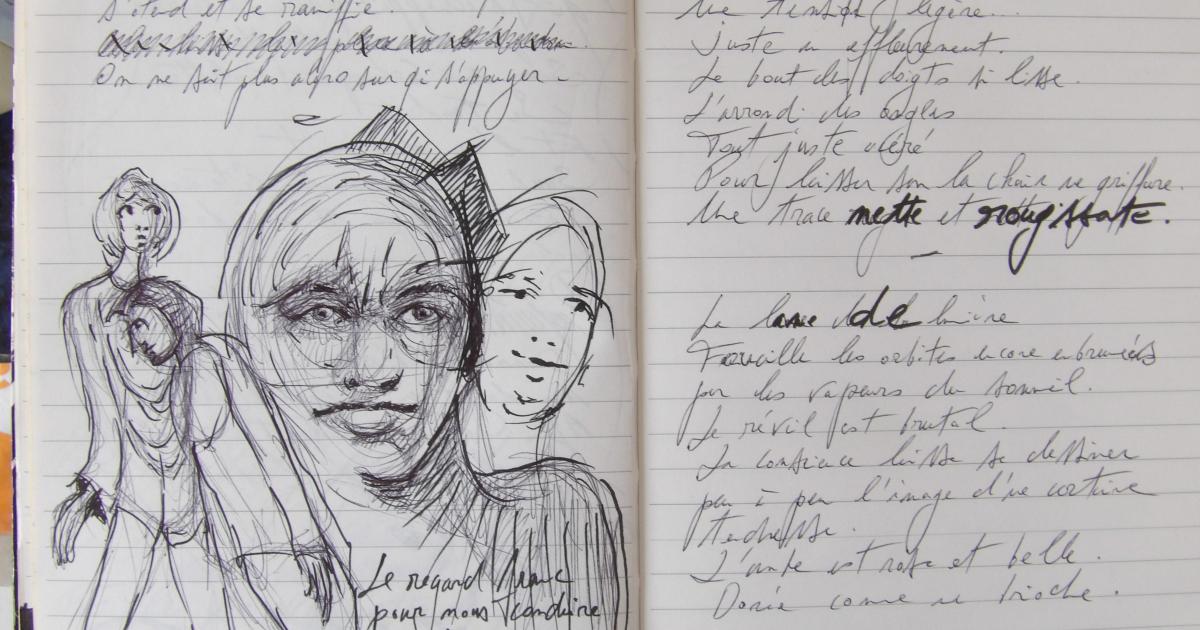 s'étend et se ramifie.
On ne sait plus alors sur qui s'appuyer -
Le regard franc
pour nous conduire
Une tension légère...
Juste un effleurement.
Le bout des doigts si lisse.
L'arrondi des ongles
Tout juste acéré
Pour laisser son la chair une griffure.
Une trace nette et rougissante.
La lame de lumière
Fouille les orbites encore embrumées
par les vapeurs du sommeil.
Le réveil est brutal.
La conscience laisse se dessiner
peu à peu l'image d'une certaine
tendresse.
L'aube est rose et belle.
Dorée comme une brioche.